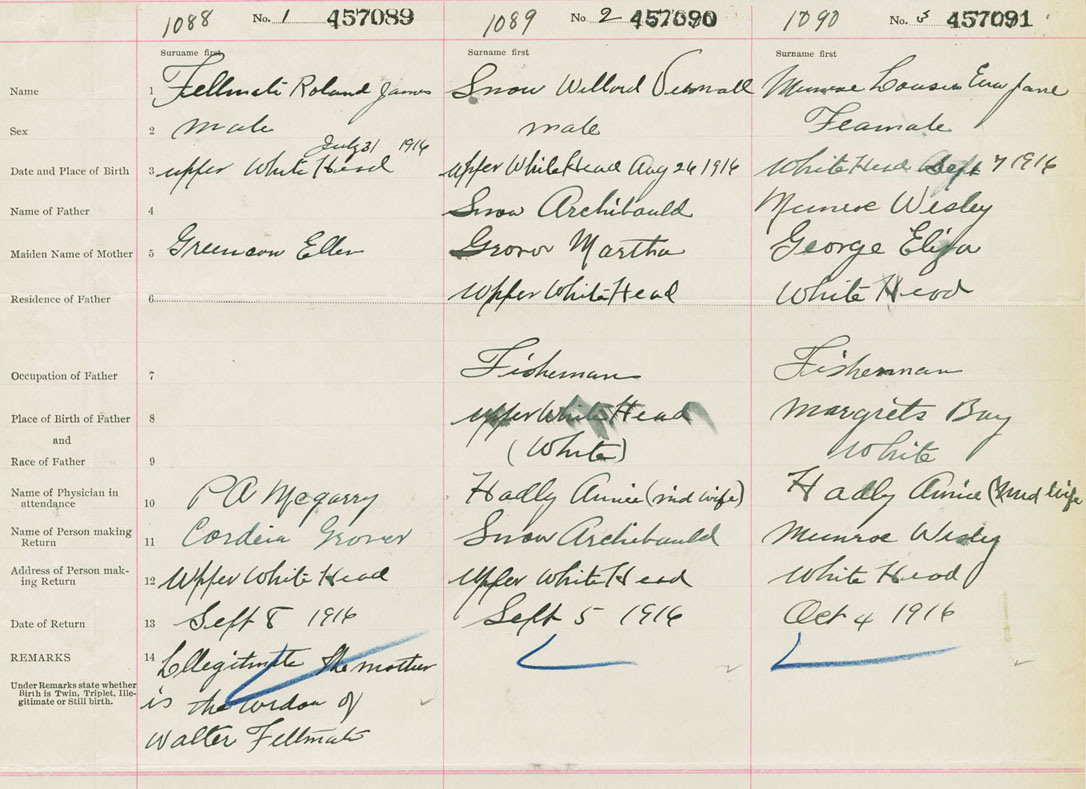 1088 No. 1 457089 1089 No. 2 457090 1090 No. 3 457091
Surname first Surname first Surname first
Name 1 Fellmate Roland James Snow Willord Vernall Munroe Eva Jane
Sex 2 male male Feamale
July 31 1916
Date and Place of Birth 3 upper White Head Upper White Head Aug 26 1916 White Head Sept 7 1916
Name of Father 4 Snow Archibauld Munroe Wesley
Maiden Name of Mother 5 Ellen Grover Martha George Eliza
Residence of Father 6 Upper White Head White Head
Occupation of Father 7 Fisheman Fisherman
Place of Birth of Father 8 upper White Head Margrets Bay
and
Race of Father 9 (White) White
Name of Physician in
attendance 10 P A Mcgarry Hadly Annie (mid wife) Hadly Annie (mid wife
Name of Person making
Return 11 Cordeia Grover Snow Archibauld Munroe Wesley
Address of Person mak-
ing Return 12 Upper White Head Upper White Head White Head
Date of Return 13 Sept 8 1916 Sept 5 1916 Oct 4 1916
REMARKS 14 Ellegitmate the mother
Under Remarks state whether
Birth is Twin, Triplet, Ille-
gitimate or Still birth.
is the widow of
Walter Fellmate